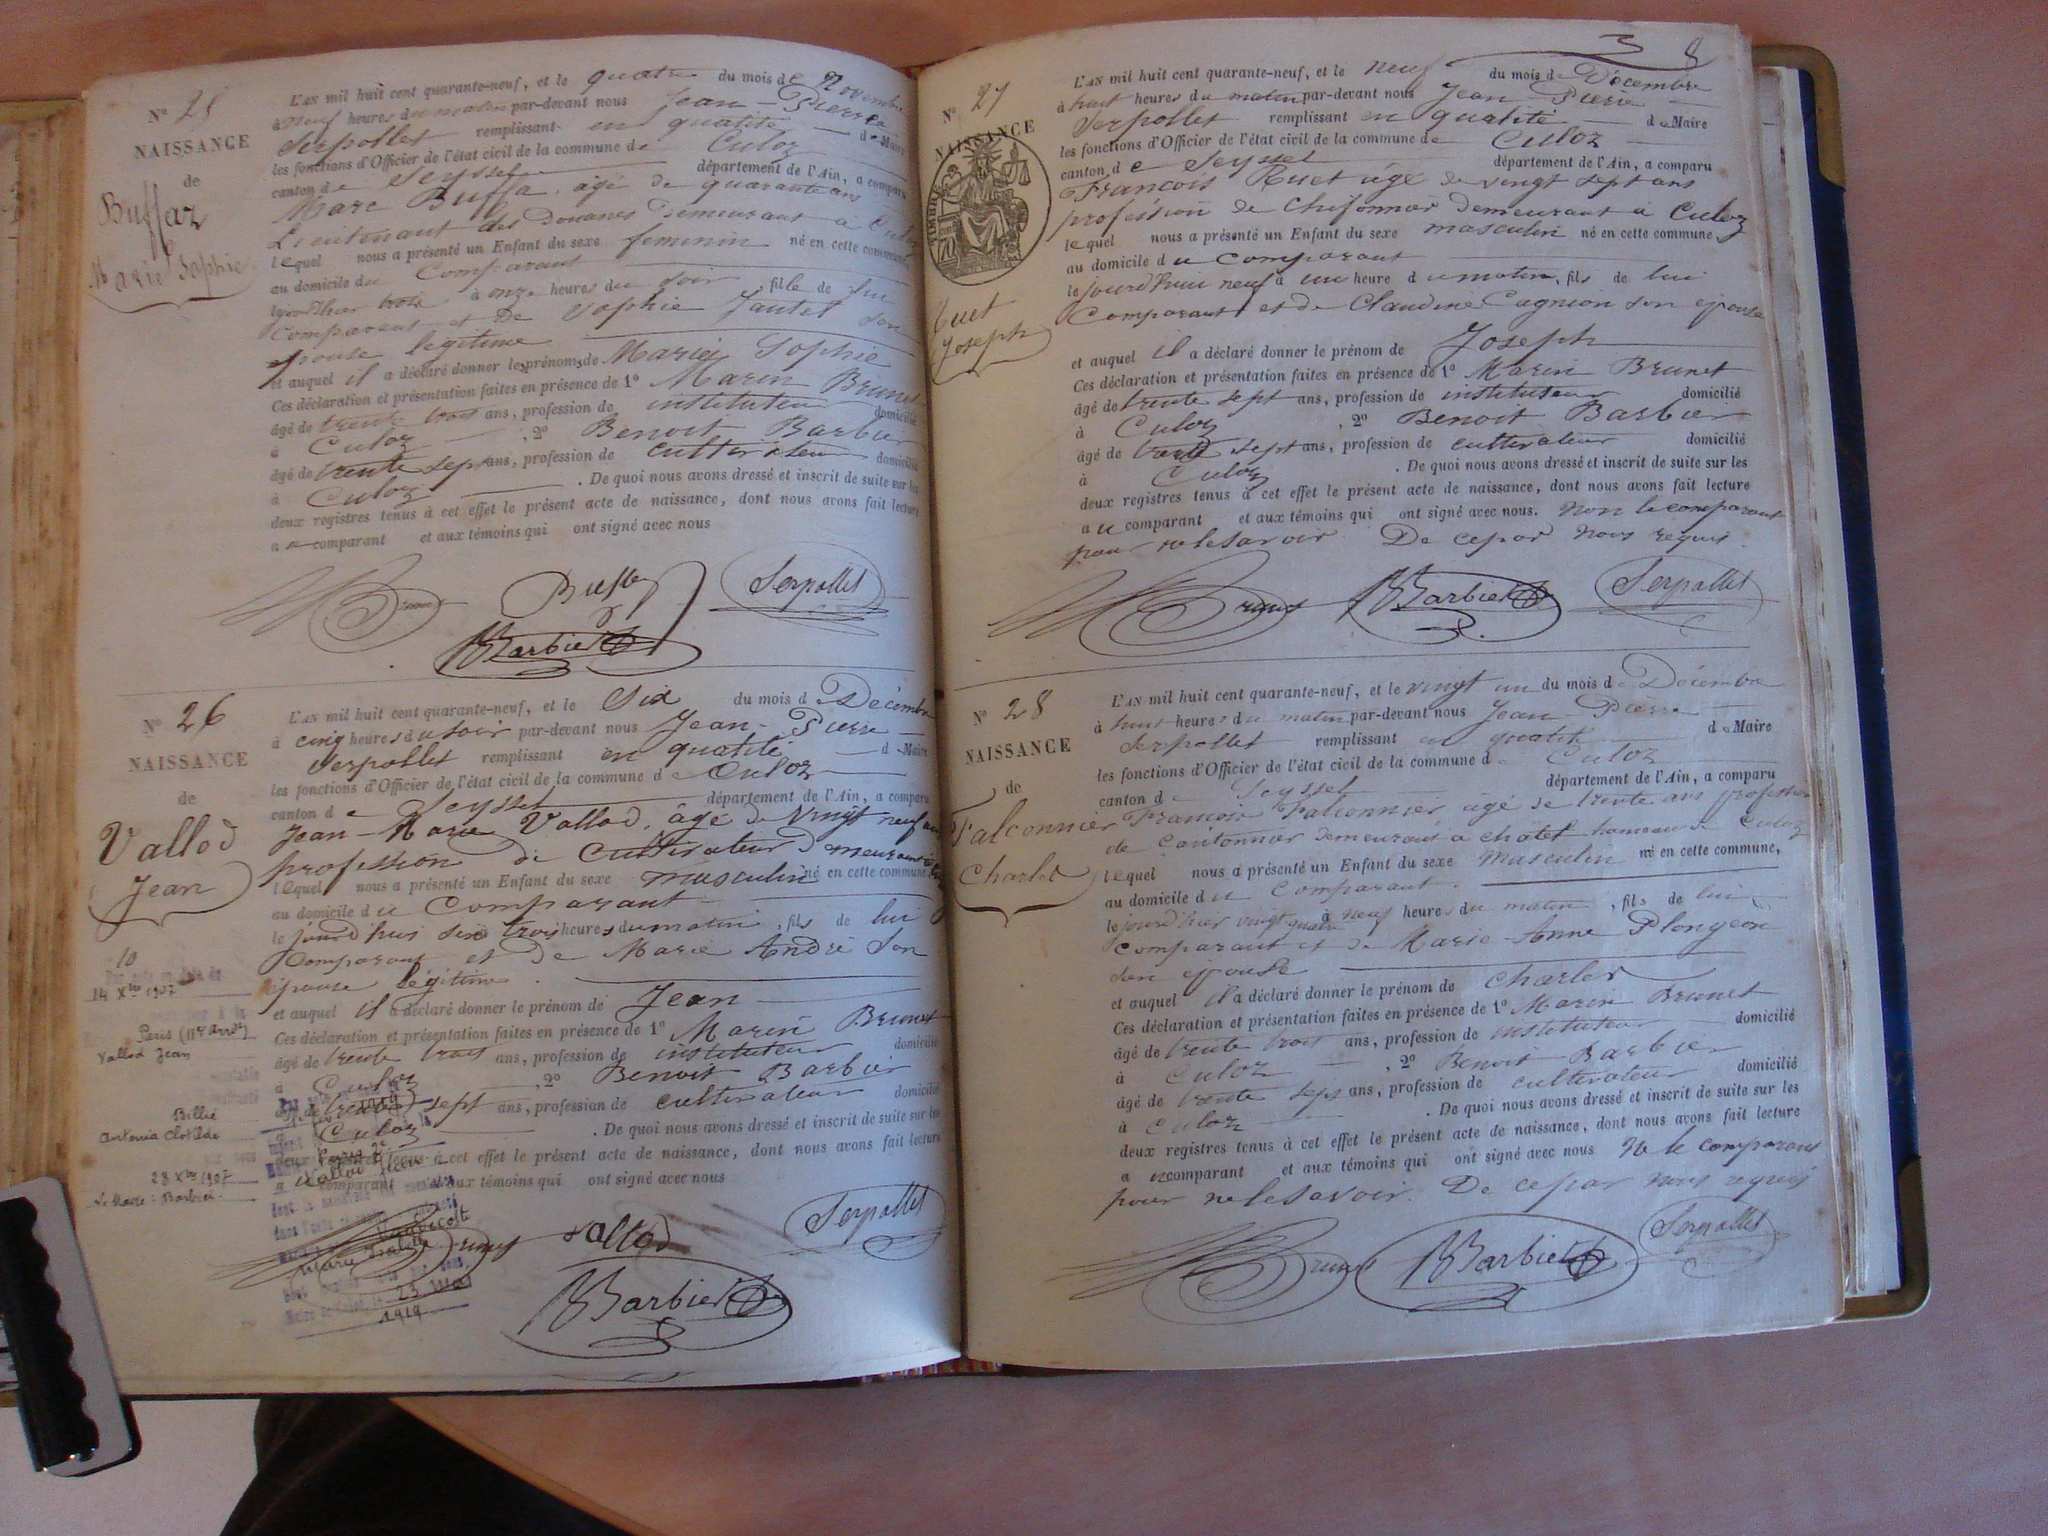 N° 25
NAISSANCE
de
Buffaz
Marie Sophie
L'AN mil huit cent quarante-neuf, et le quatre du mois de Novembre
à neuf heures du matin par-devant nous Jean-Pierre
Serpollet remplissant en qualité de Maire
les fonctions d'Officier de l'état civil de la commune de Culoz
canton de Seyssel département de l'Ain, a comparu
Marc Buffa, âgé de quarante ans
Lieutenant des Douanes demeurant à Culoz
lequel nous a présenté un Enfant du sexe feminin né en cette commune,
au domicile du Comparant
hier trois à onze heures du soir, fille de lui
Comparant et de Sophie Jautet son
épouse légitime
et auquel il a déclaré donner les prénoms de Marie Sophie
Ces déclaration et présentation faites en présence de 1° Marin Brunet
âgé de trente trois ans, profession de instituteur domicilié
à Culoz , 2° Benoit Barbier
âgé de trente sept ans, profession de cultivateur domicilié
à Culoz . De quoi nous avons dressé et inscrit de suite sur les
deux registres tenus à cet effet le présent acte de naissance, dont nous avons fait lecture
au comparant et aux témoins qui ont signé avec nous
Brunet Buffa Serpollet
BBarbier
N° 26
NAISSANCE
de
Vallod
Jean
10
14 Xbre 1907
Paris (11e Arrt)
Vallod Jean
Billié
Antonia Clotilde
28 Xbre 1907
Le Maire: Barbier
L'AN mil huit cent quarante-neuf, et le Six du mois de Décembre
à cinq heures du soir par-devant nous Jean-Pierre
Serpollet remplissant en qualité de Maire
les fonctions d'Officier de l'état civil de la commune de Culoz
canton de Seyssel département de l'Ain, a comparu
Jean-Marie Vallod, âgé de vingt neuf ans
profession de cultivateur demeurant à
lequel nous a présenté un Enfant du sexe masculin né en cette commune,
au domicile du Comparant
le jourd'hui six à trois heures du matin, fils de lui
Comparant et de Marie André son
épouse légitime.
et auquel il a déclaré donner le prénom de Jean
Ces déclaration et présentation faites en présence de 1° Marin Brunet
âgé de trente trois ans, profession de instituteur domicilié
à Culoz , 2° Benoit Barbier
âgé de trente sept ans, profession de cultivateur domicilié
à Culoz . De quoi nous avons dressé et inscrit de suite sur les
deux registres tenus à cet effet le présent acte de naissance, dont nous avons fait lecture
au comparant et aux témoins qui ont signé avec nous
Marie
23 Mai
1919
Brunet Vallod Serpollet
BBarbier
8
N° 27
NAISSANCE
TIMBRE
Ruet
Joseph
L'AN mil huit cent quarante-neuf, et le neuf du mois de Décembre
à huit heures du matin par-devant nous Jean-Pierre
Serpollet remplissant en qualité de Maire
les fonctions d'Officier de l'état civil de la commune de Culoz
canton de Seyssel département de l'Ain, a comparu
Francois Ruet âgé de vingt sept ans
profession de Chifonnier demeurant à Culoz
lequel nous a présenté un Enfant du sexe masculin né en cette commune,
au domicile du Comparant
le jourd'hui neuf à une heure du matin, fils de lui
Comparant et de Claudine Cagnion son épouse
et auquel il a déclaré donner le prénom de Joseph
Ces déclaration et présentation faites en présence de 1° Marin Brunet
âgé de trente sept ans, profession de instituteur domicilié
à Culoz , 2° Benoit Barbier
âgé de trente sept ans, profession de cultivateur domicilié
à Culoz . De quoi nous avons dressé et inscrit de suite sur les
deux registres tenus à cet effet le présent acte de naissance, dont nous avons fait lecture
au comparant et aux témoins qui ont signé avec nous. Non le comparant
pour ne le savoir. De ce par nous requis.
Brunet BBarbier Serpollet
N° 28
NAISSANCE
de
Falconnier
Charles
L'AN mil huit cent quarante-neuf, et le vingt un du mois de Décembre
à huit heures du matin par-devant nous Jean-Pierre
Serpollet remplissant en qualité de Maire
les fonctions d'Officier de l'état civil de la commune de Culoz
canton de Seyssel département de l'Ain, a comparu
François Falconnier, âgé de trente ans profession
de Cantonnier demeurant a chatel hameau de Culoz
lequel nous a présenté un Enfant du sexe masculin né en cette commune,
au domicile du Comparant.
le jourd'hier vingt à neuf heures du matin, fils de lui
comparant et de Marie-Anne Plongeon
son épouse
et auquel il a déclaré donner le prénom de Charles
Ces déclaration et présentation faites en présence de 1° Marin Brunet
âgé de trente trois ans, profession de instituteur domicilié
à Culoz , 2° Benoit Barbier
âgé de trente sept ans, profession de cultivateur domicilié
à Culoz . De quoi nous avons dressé et inscrit de suite sur les
deux registres tenus à cet effet le présent acte de naissance, dont nous avons fait lecture
au comparant et aux témoins qui ont signé avec nous No le comparant
pour ne le savoir. De ce par nous requis
Brunet BBarbier Serpollet